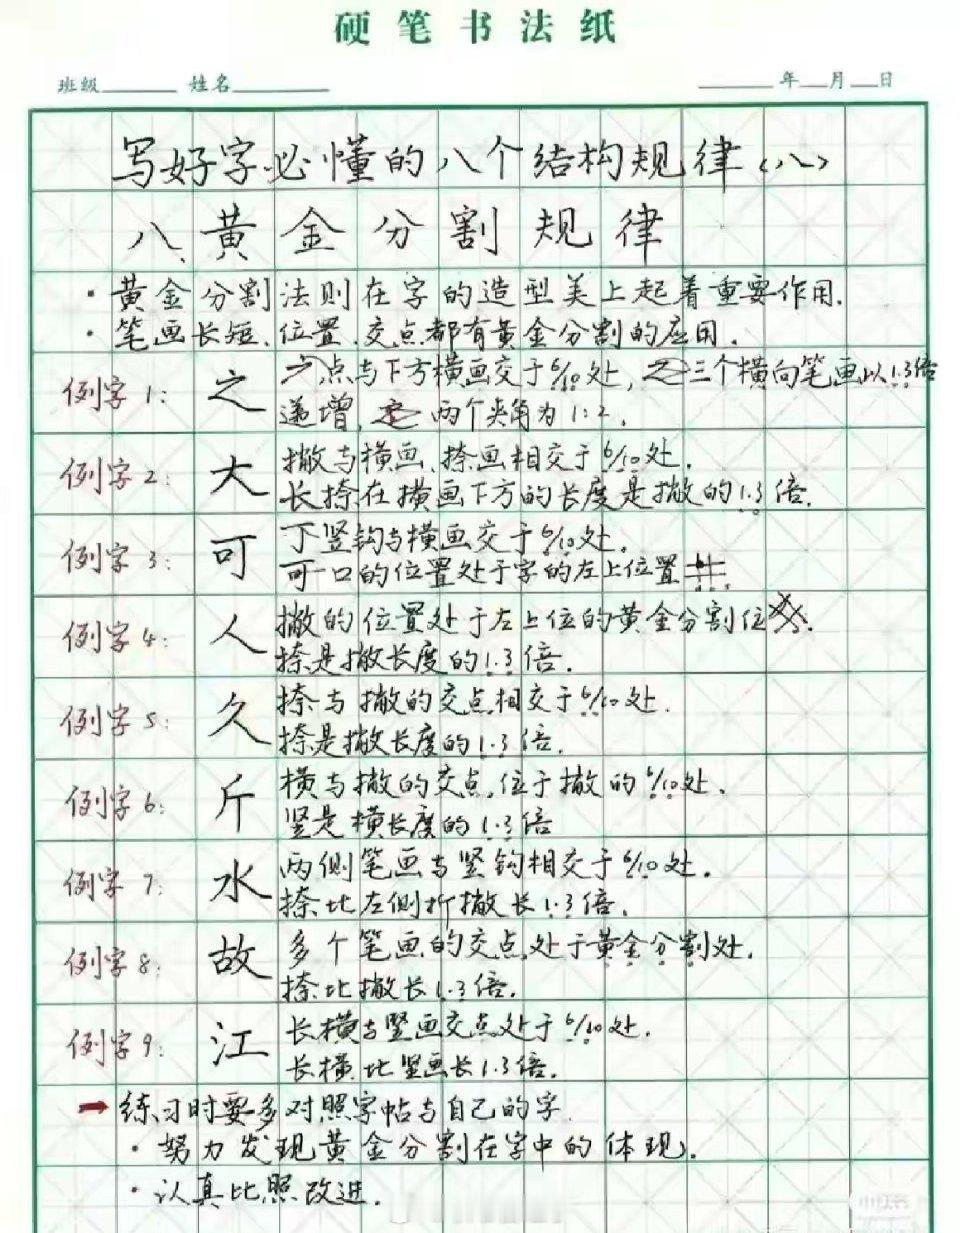 硬笔书法纸
班级 姓名 年 月 日
写好字必懂的八个结构规律(八)
八、黄金分割规律
·黄金分割法则在字的造型美上起着重要作用.
·笔画长短、位置、交点都有黄金分割的应用.
例字1: 之 点与下方横画交于6/10处, 三个横向笔画以1.3倍
递增, 两个夹角为1:2.
例字2: 大 撇与横画、捺画相交于6/10处.
长捺在横画下方的长度是撇的1.3倍.
例字3: 可 丁竖钩与横画交于6/10处.
可口的位置处于字的左上位置
例字4: 人 撇的位置处于左上位的黄金分割位
捺是撇长度的1.3倍.
例字5: 久 捺与撇的交点相交于6/10处.
捺是撇长度的1.3倍.
例字6: 斤 横与撇的交点,位于撇的6/10处.
竖是横长度的1.3倍
例字7: 水 两侧笔画与竖钩相交于6/10处.
捺比左侧折撇长1.3倍.
例字8: 故 多个笔画的交点处于黄金分割处.
捺比撇长1.3倍.
例字9: 江 长横与竖画交点处于6/10处.
长横比竖画长1.3倍.
→练习时要多对照字帖与自己的字.
·努力发现黄金分割在字中的体现.
·认真比照改进.
小红书